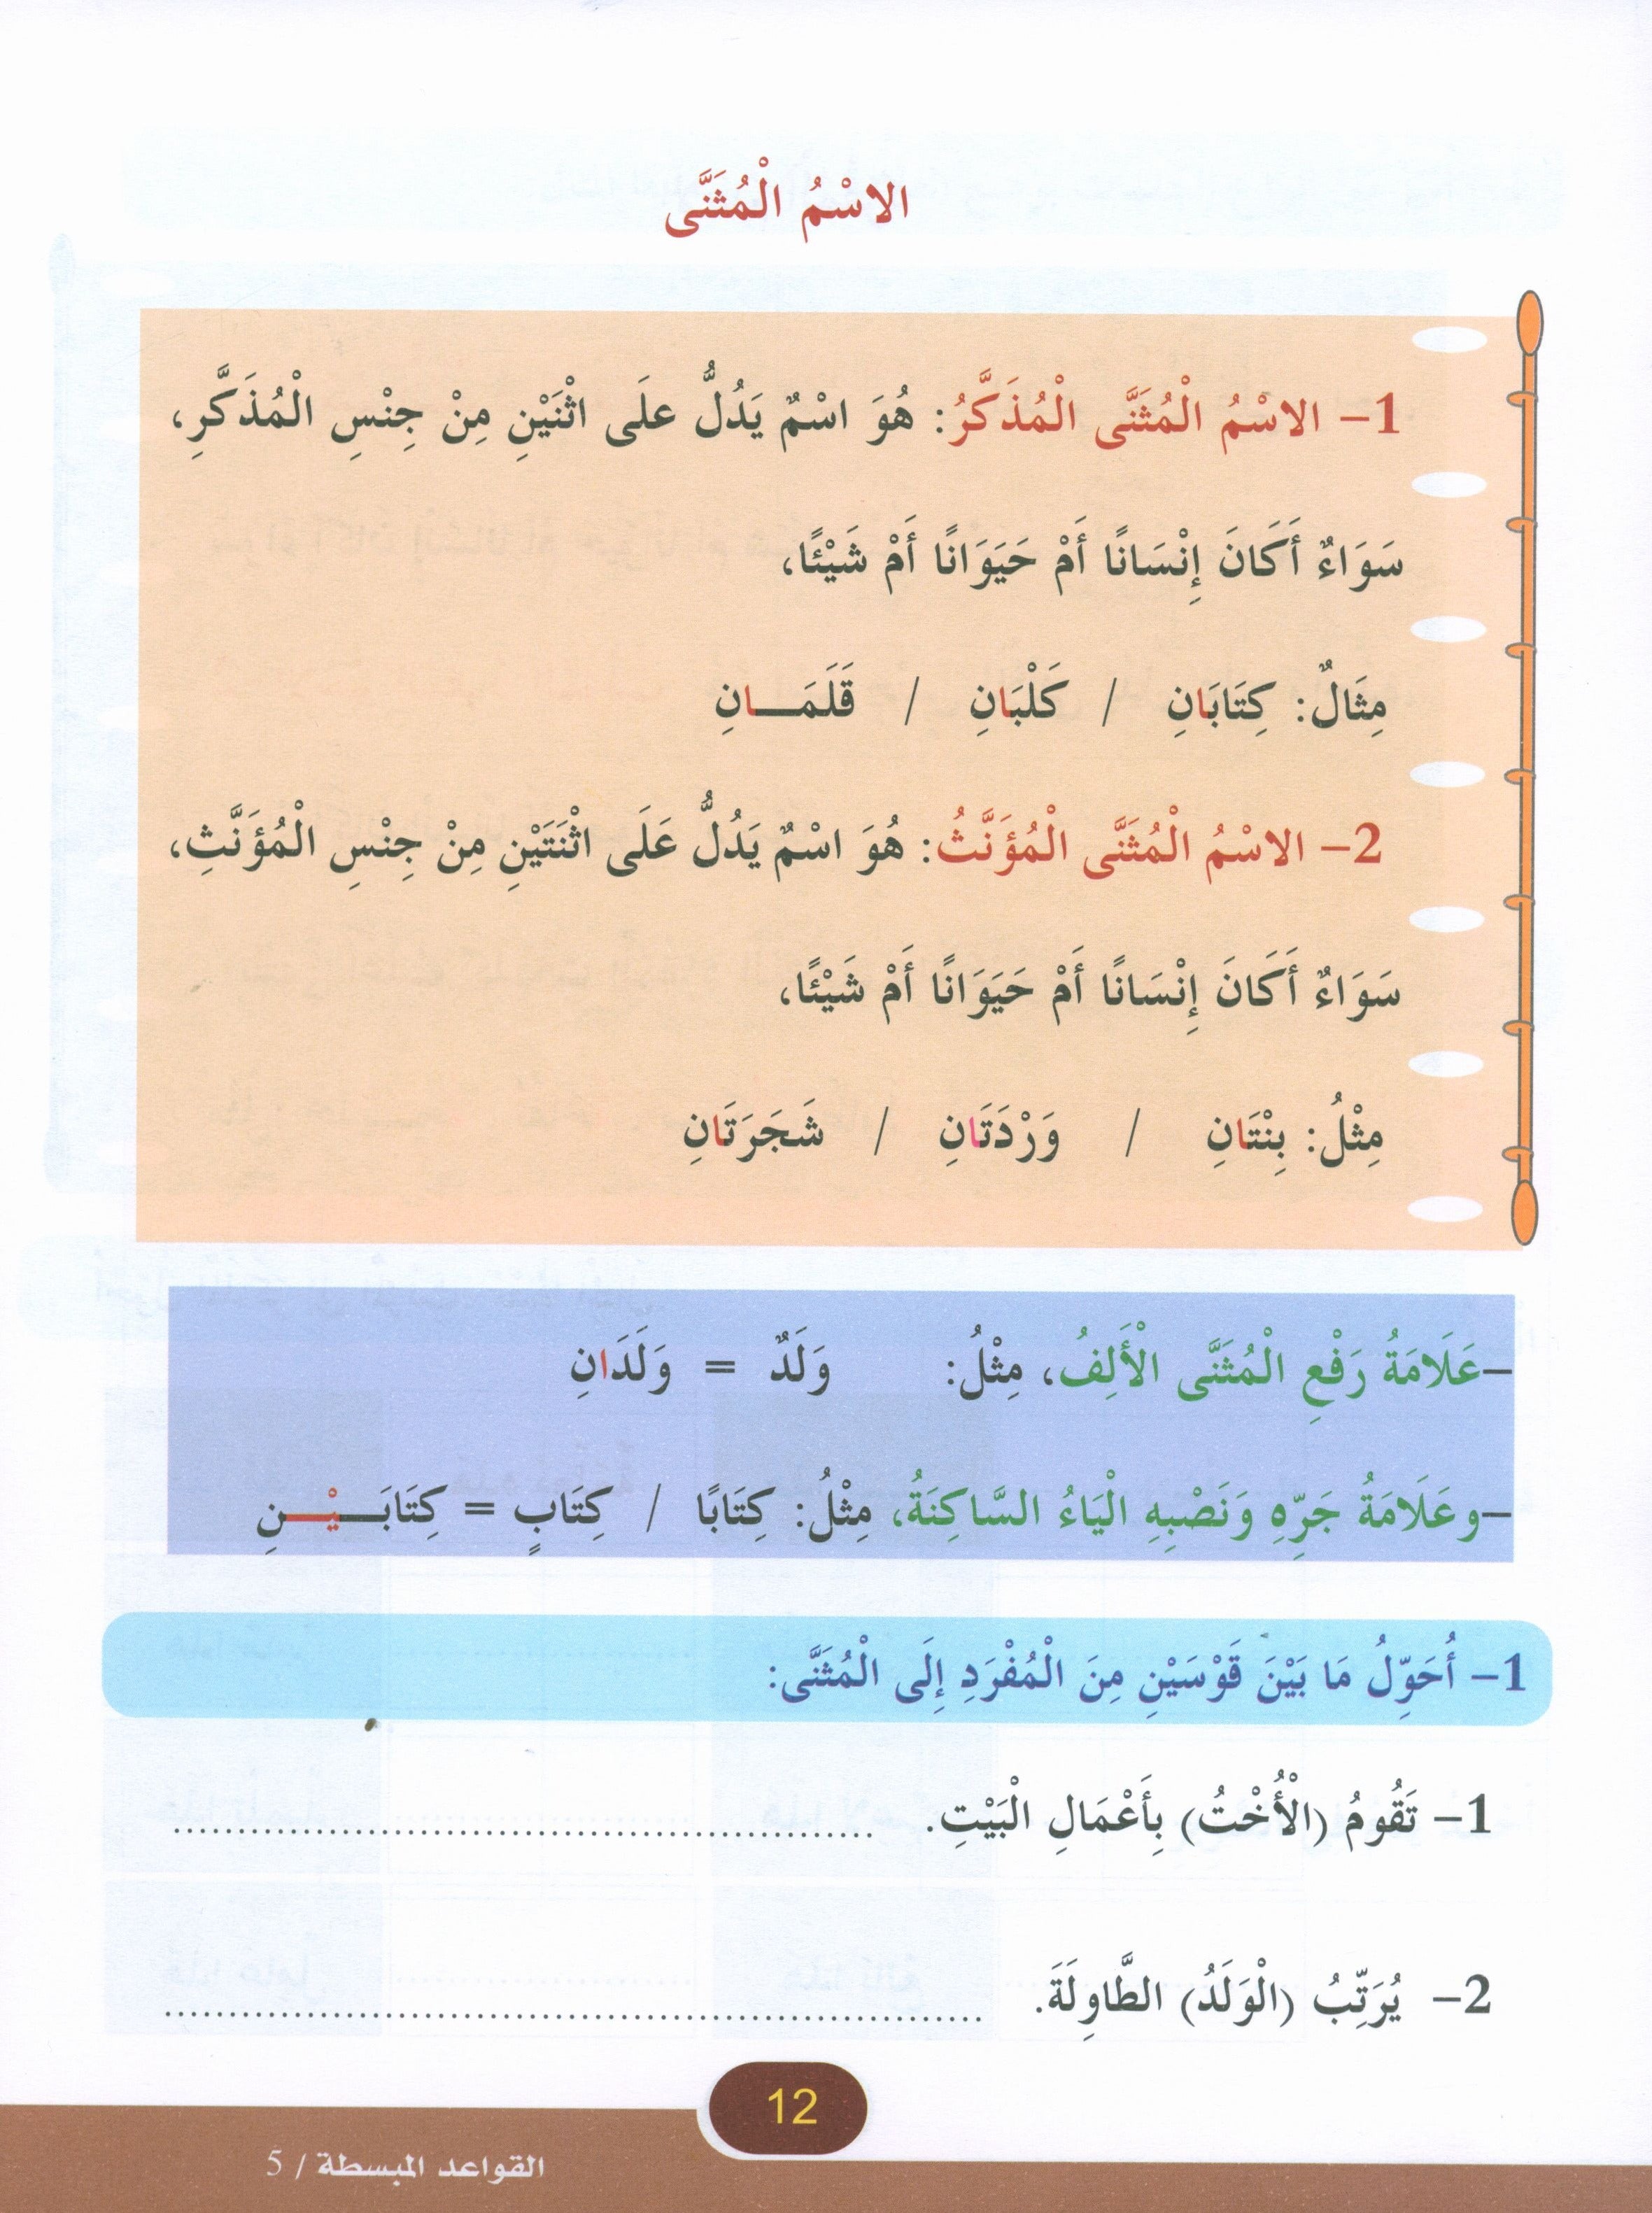 الاسْمُ الْمُثَنَّى
1- الاسْمُ الْمُثَنَّى الْمُذَكَّرُ: هُوَ اسْمٌ يَدُلُّ علَى اثْنَيْنِ مِنْ جِنْسِ الْمُذَكَّرِ،
سَوَاءٌ أَكَانَ إِنْسَانًا أَمْ حَيَوَانًا أَمْ شَيْئًا،
مِثَالٌ: كِتَابَانِ / كَلْبَانِ / قَلَمَـــانِ
2- الاسْمُ الْمُثَنَّى الْمُؤَنَّثُ: هُوَ اسْمٌ يَدُلُّ عَلَى اثْنَتَيْنِ مِنْ جِنْسِ الْمُؤَنَّثِ،
سَوَاءٌ أَكَانَ إِنْسَانًا أَمْ حَيَوَانًا أَمْ شَيْئًا،
مِثْلُ: بِنْتَانِ / وَرْدَتَانِ / شَجَرَتَانِ
-عَلَامَةُ رَفْعِ الْمُثَنَّى الْأَلِفُ، مِثْلُ: وَلَدٌ = وَلَدَانِ
-وعَلَامَةُ جَرِّهِ وَنَصْبِهِ الْيَاءُ السَّاكِنَةُ، مِثْلُ: كِتَابًا / كِتَابٍ = كِتَابَـــيْـــنِ
1- أُحَوِّلُ مَا بَيْنَ قَوْسَيْنِ مِنَ الْمُفْرَدِ إِلَى الْمُثَنَّى:
1- تَقُومُ (الْأُخْتُ) بِأَعْمَالِ الْبَيْتِ. ........................................................
2- يُرَتِّبُ (الْوَلَدُ) الطَّاوِلَةَ. ................................................................
12
القواعد المبسطة / 5